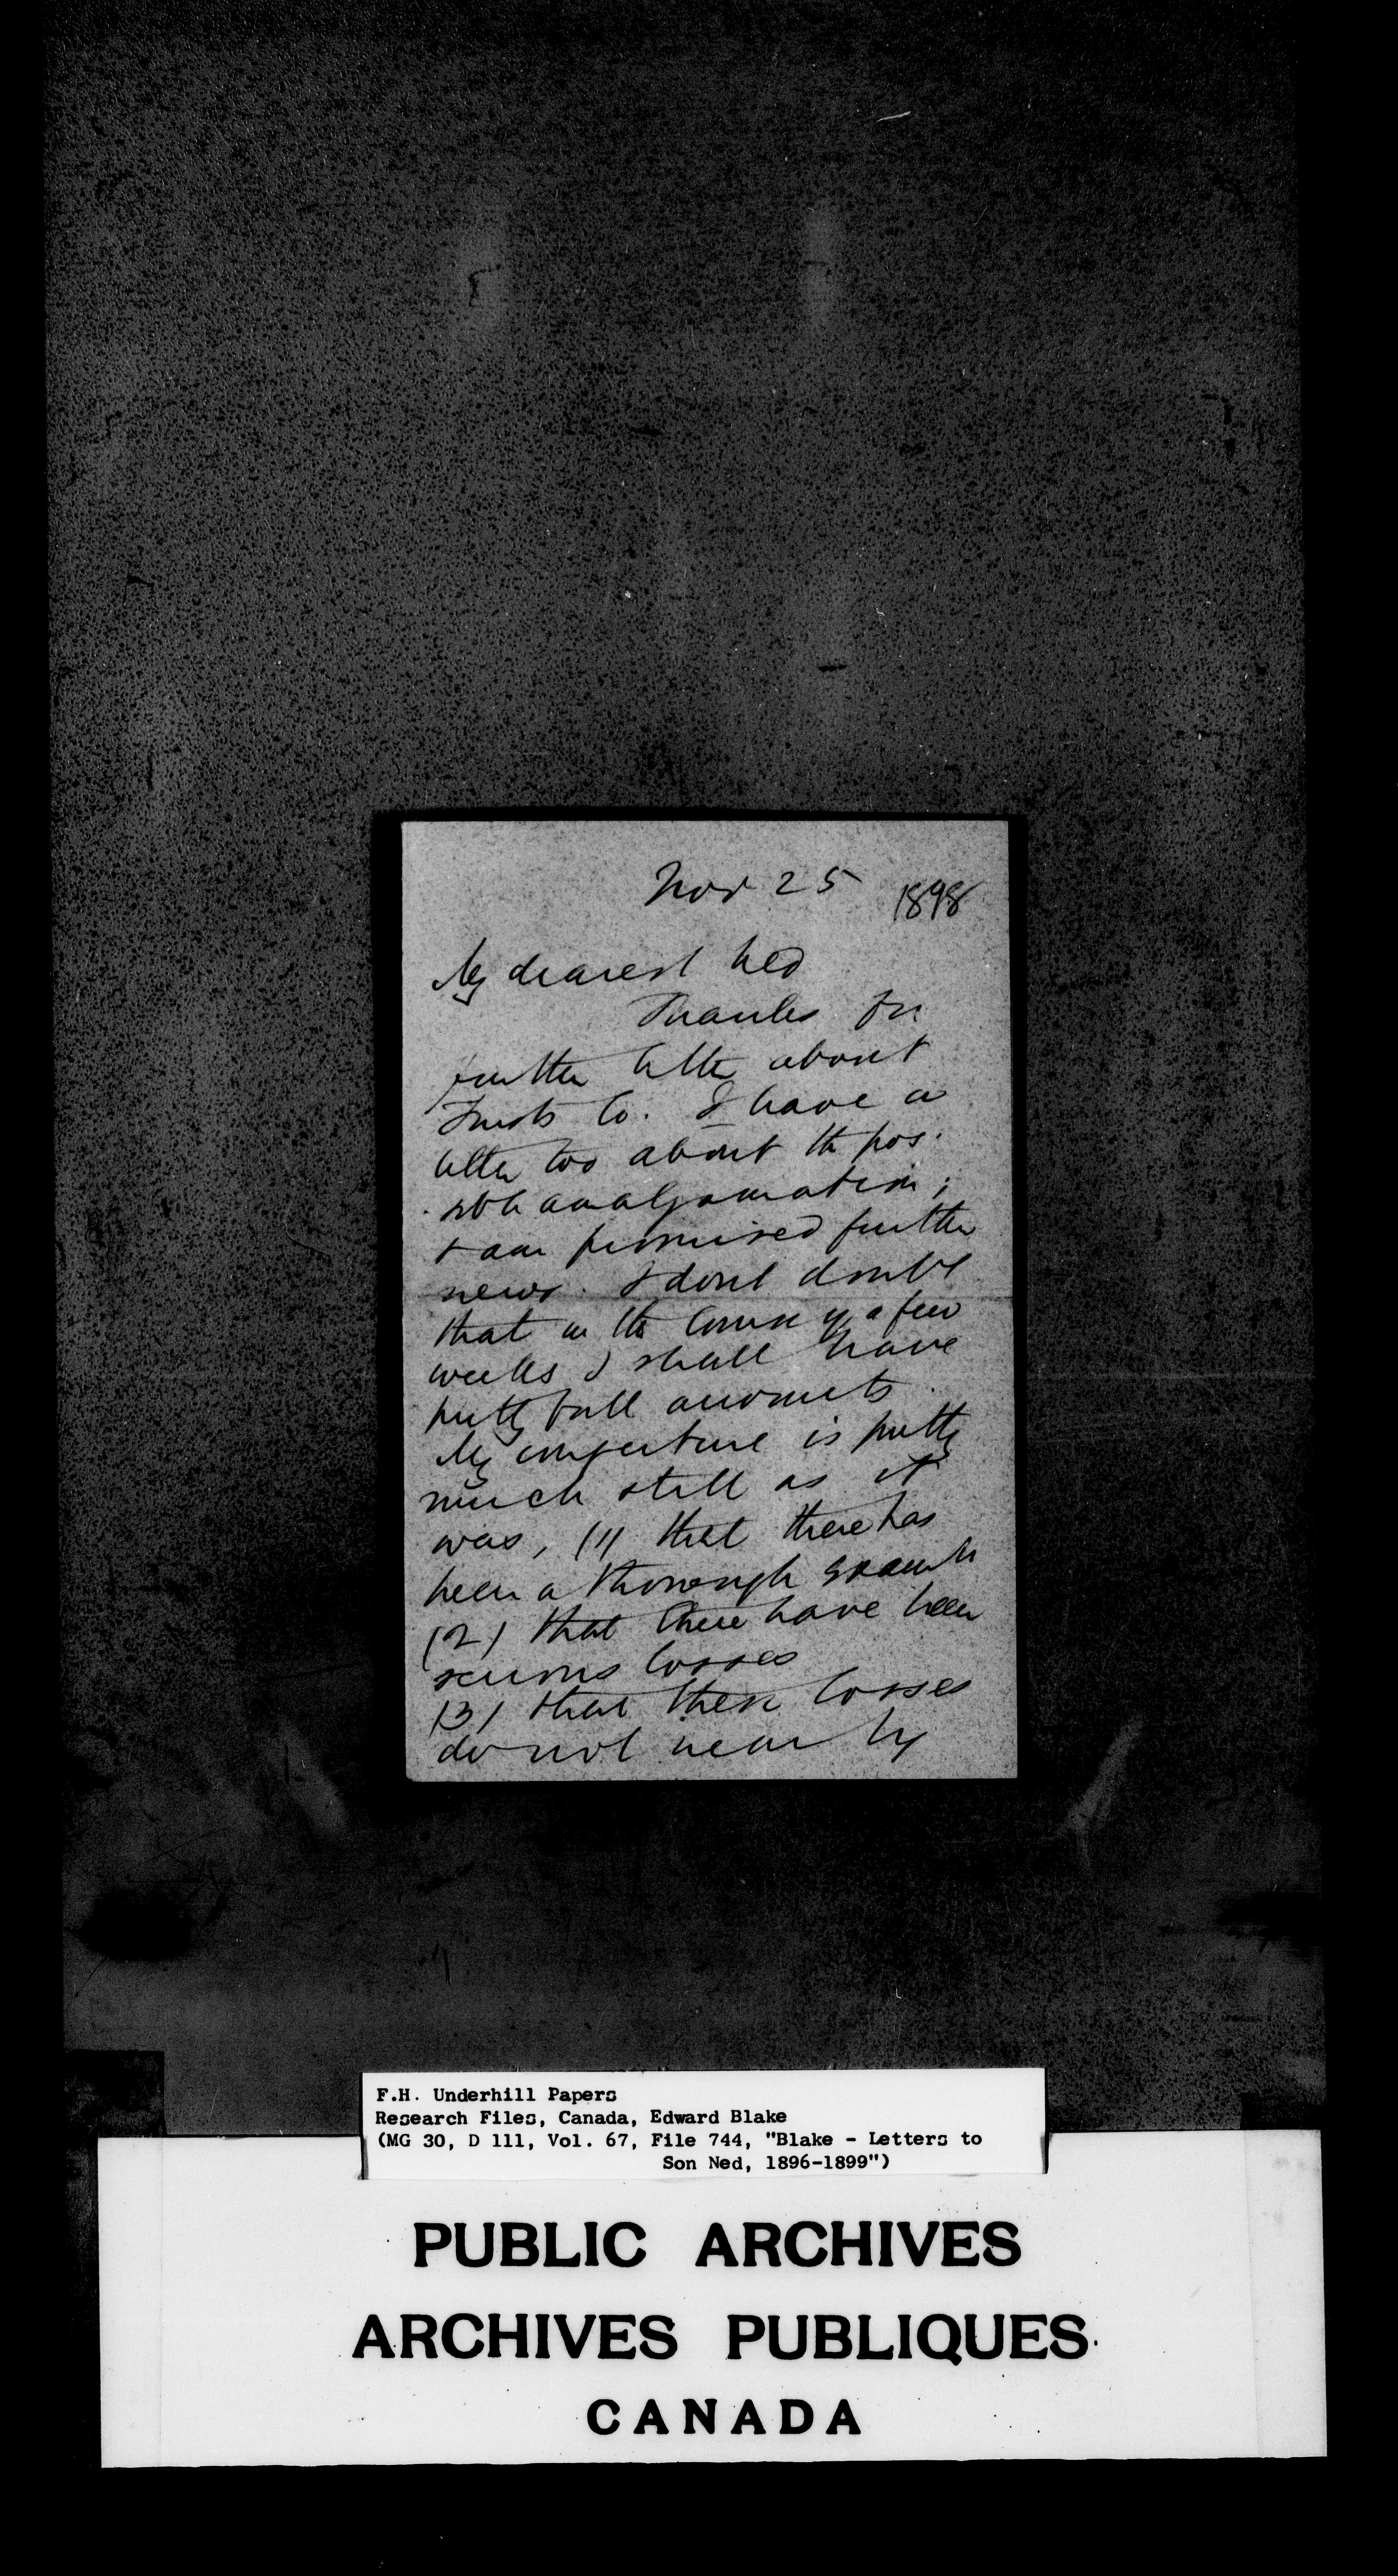 Nov 25 1898
My dearest Ned
Thanks for
further letter about
Trusts Co. I have a
letter too about the pos-
sible amalgamation;
& am promised further
news. I dont doubt
that in the course of a few
weeks I shall have
pretty full accounts.
My conjecture is pretty
much still as it
was, (1) that there has
been a thorough exam'n
(2) that there have been
serious losses
(3) that these losses
do not nearly
F.H. Underhill Papers
Research Files, Canada, Edward Blake
(MG 30, D 111, Vol. 67, File 744, "Blake - Letters to
Son Ned, 1896-1899")
PUBLIC ARCHIVES
ARCHIVES PUBLIQUES
CANADA